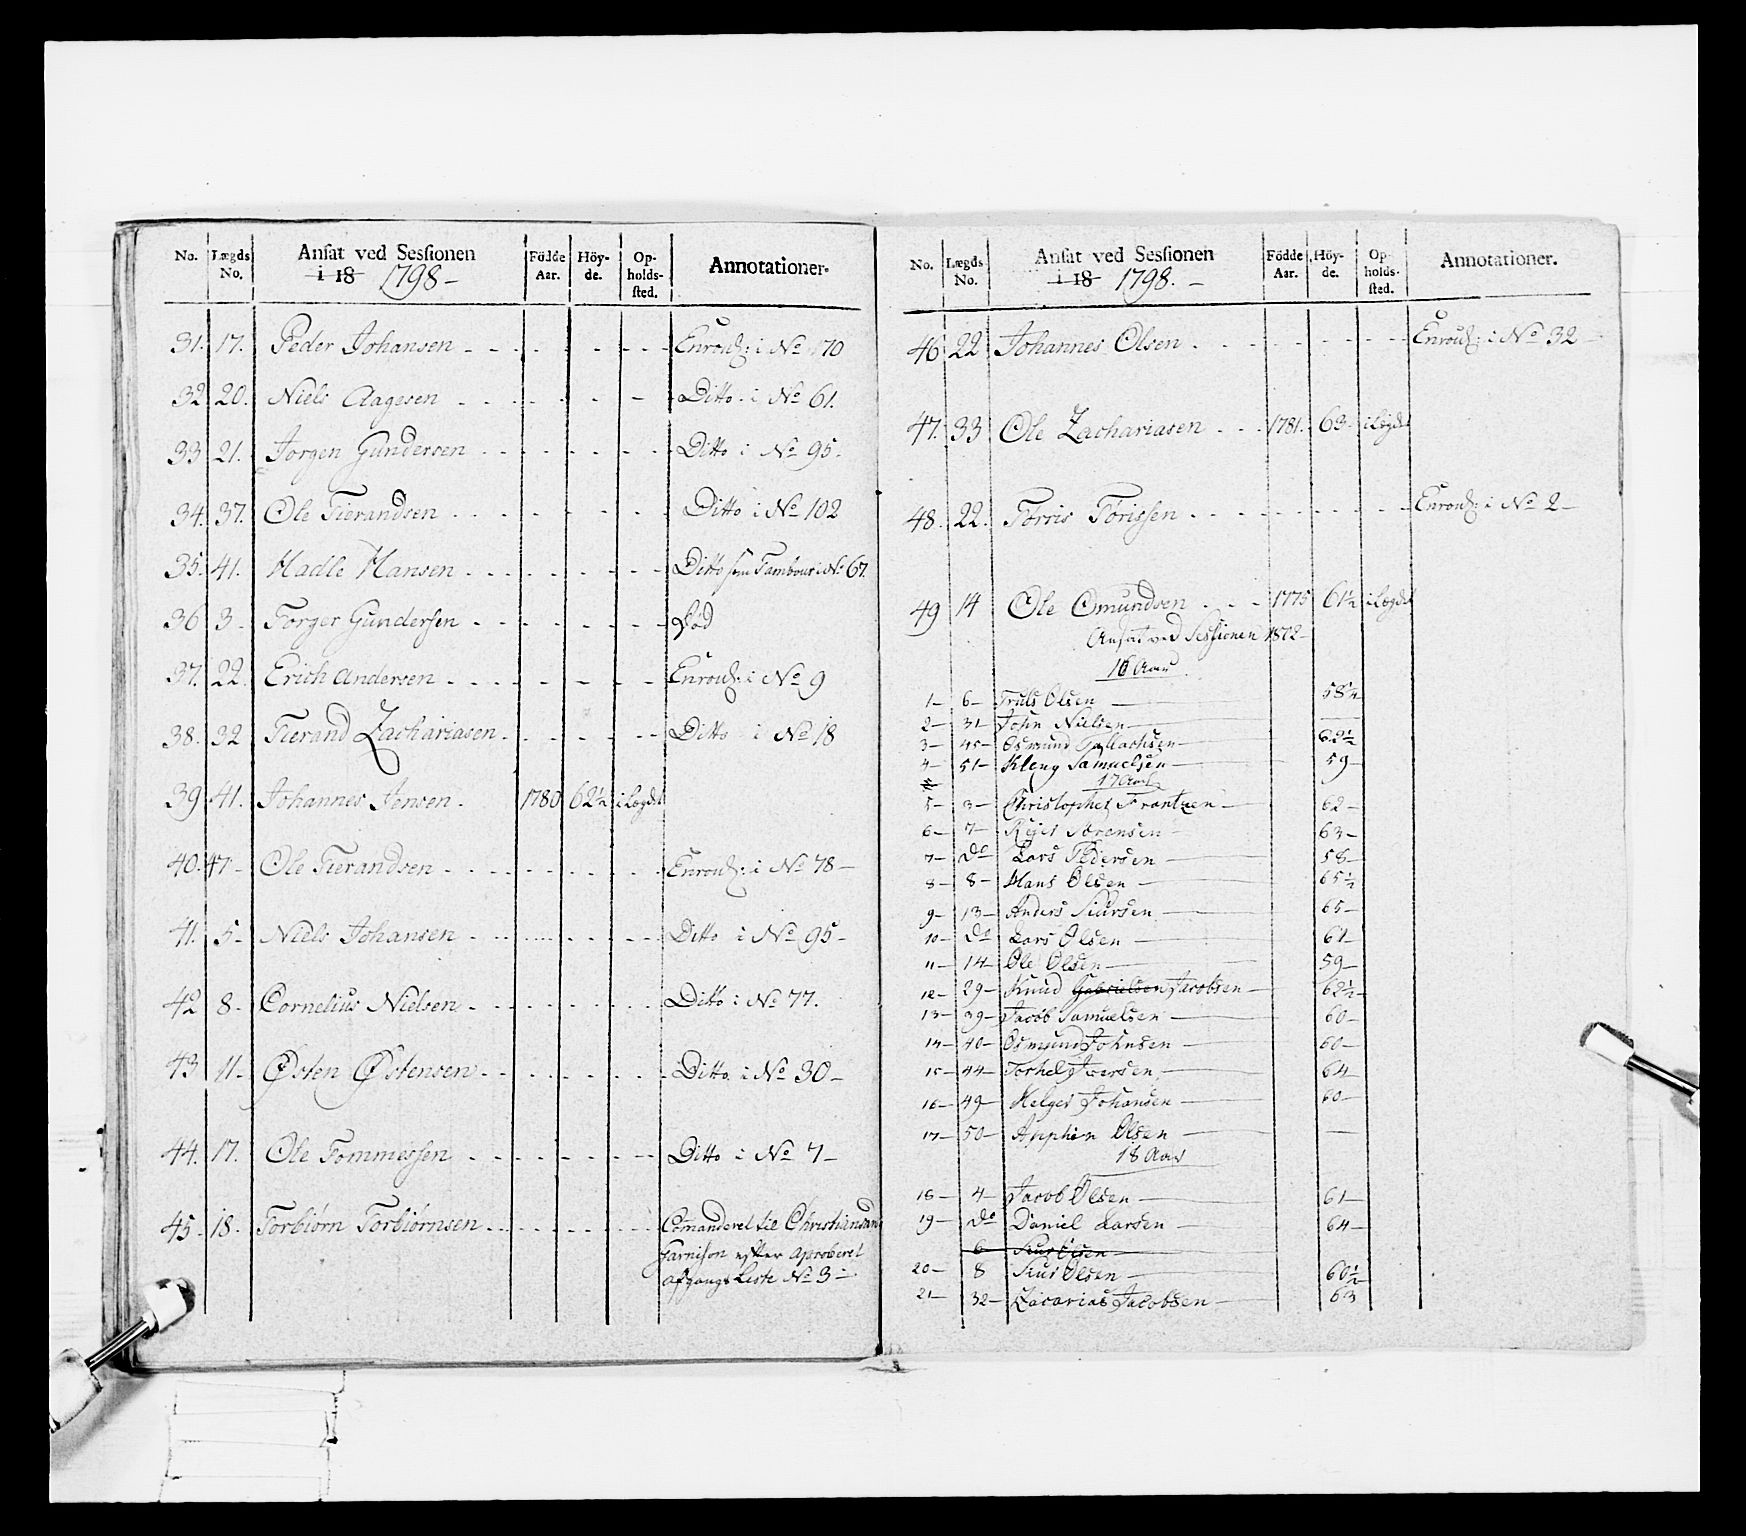 No. Lægds No. Ansat ved Sessionen i 18 1798 – Födde Aar. Höyde. Opholdssted. Annotationer.
31. 17. Peder Johansen Enroul: i No 170
32 20. Niels Aagesen Ditto i No 61.
33 21. Jørgen Gundersen Ditto i No 95.
34. 37. Ole Tierandsen Ditto i No 102
35. 41. Hadle Hansen Ditto som Tambour i No 67.
36 3 Torger Gundersen Død
37. 22. Erich Andersen Enroul: i No 9
38. 32 Tierand Zachariasen Ditto i No 18
39 41. Johannes Jensen. 1780 62½ i Lægdet
40. 47 Ole Tierandsen Enroul: i No 78 –
41. 5 Niels Johansen Ditto i No 95 –
42 8 Cornelius Nielsen Ditto i No 77.
43 11 Østen Østensen Ditto i No 30 –
44. 17. Ole Tommessen Ditto i No 7 –
45 18. Torbiørn Torbiørnsen Comanderet til Christiansand
Garnison efter Aproberet
Afgangs Liste No 3 –
No. Lægds No. Ansat ved Sessionen i 18 1798. – Födde Aar. Höyde. Opholdssted. Annotationer.
46 22 Johannes Olsen Enroul: i No 32
47. 33 Ole Zachariasen 1781. 63 i Lægdet
48. 22. Tørris Tørissen Enroul: i No 2 –
49 14 Ole Omundsen 1775 61½ i Lægdet
Ansat ved Sessionen 1802 –
16 Aar
1 – 6 – Truls Olsen 58¼
2 – 31 John Nielsen –
3 – 45 – Osmund Tallachsen 62½
4 – 51 – Kleng Samuelsen 59 –
17 Aar
5 – 3 – Christopher Frantzen – 62 –
6 – 7 – Rejer Sørensen 63 –
7 – do Lars Pedersen 58 –
8 – 8 – Hans Olsen – 65½
9 – 13 – Anders Siursen 65 –
10 – do Lars Olsen – 61 –
11 – 14 – Ole Olsen – 59 –
12 – 29 – Knud Gabrielsen Jacobsen – 62½
13 – 39 – Jacob Samuelsen 60 –
14 – 40 – Osmund Johnsen 60 –
15 – 44 – Torkel Iversen 64
16 – 49 – Helger Johansen – 60 –
17 – 50 – Olsen –
18 Aar
18 – 4 – Jacob Olsen – 61 –
19 – do Daniel Larsen – 64 –
6 Siur Olsen –
20 – 8 Siur Olsen 60½
21 – 32 – Zacarias Jacobsen – 63